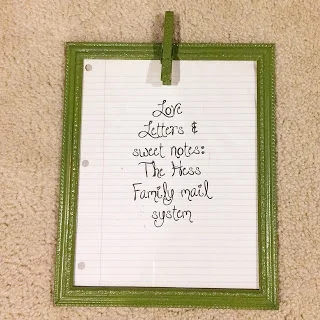 Love
Letters &
sweet notes:
The Hess
Family mail
system